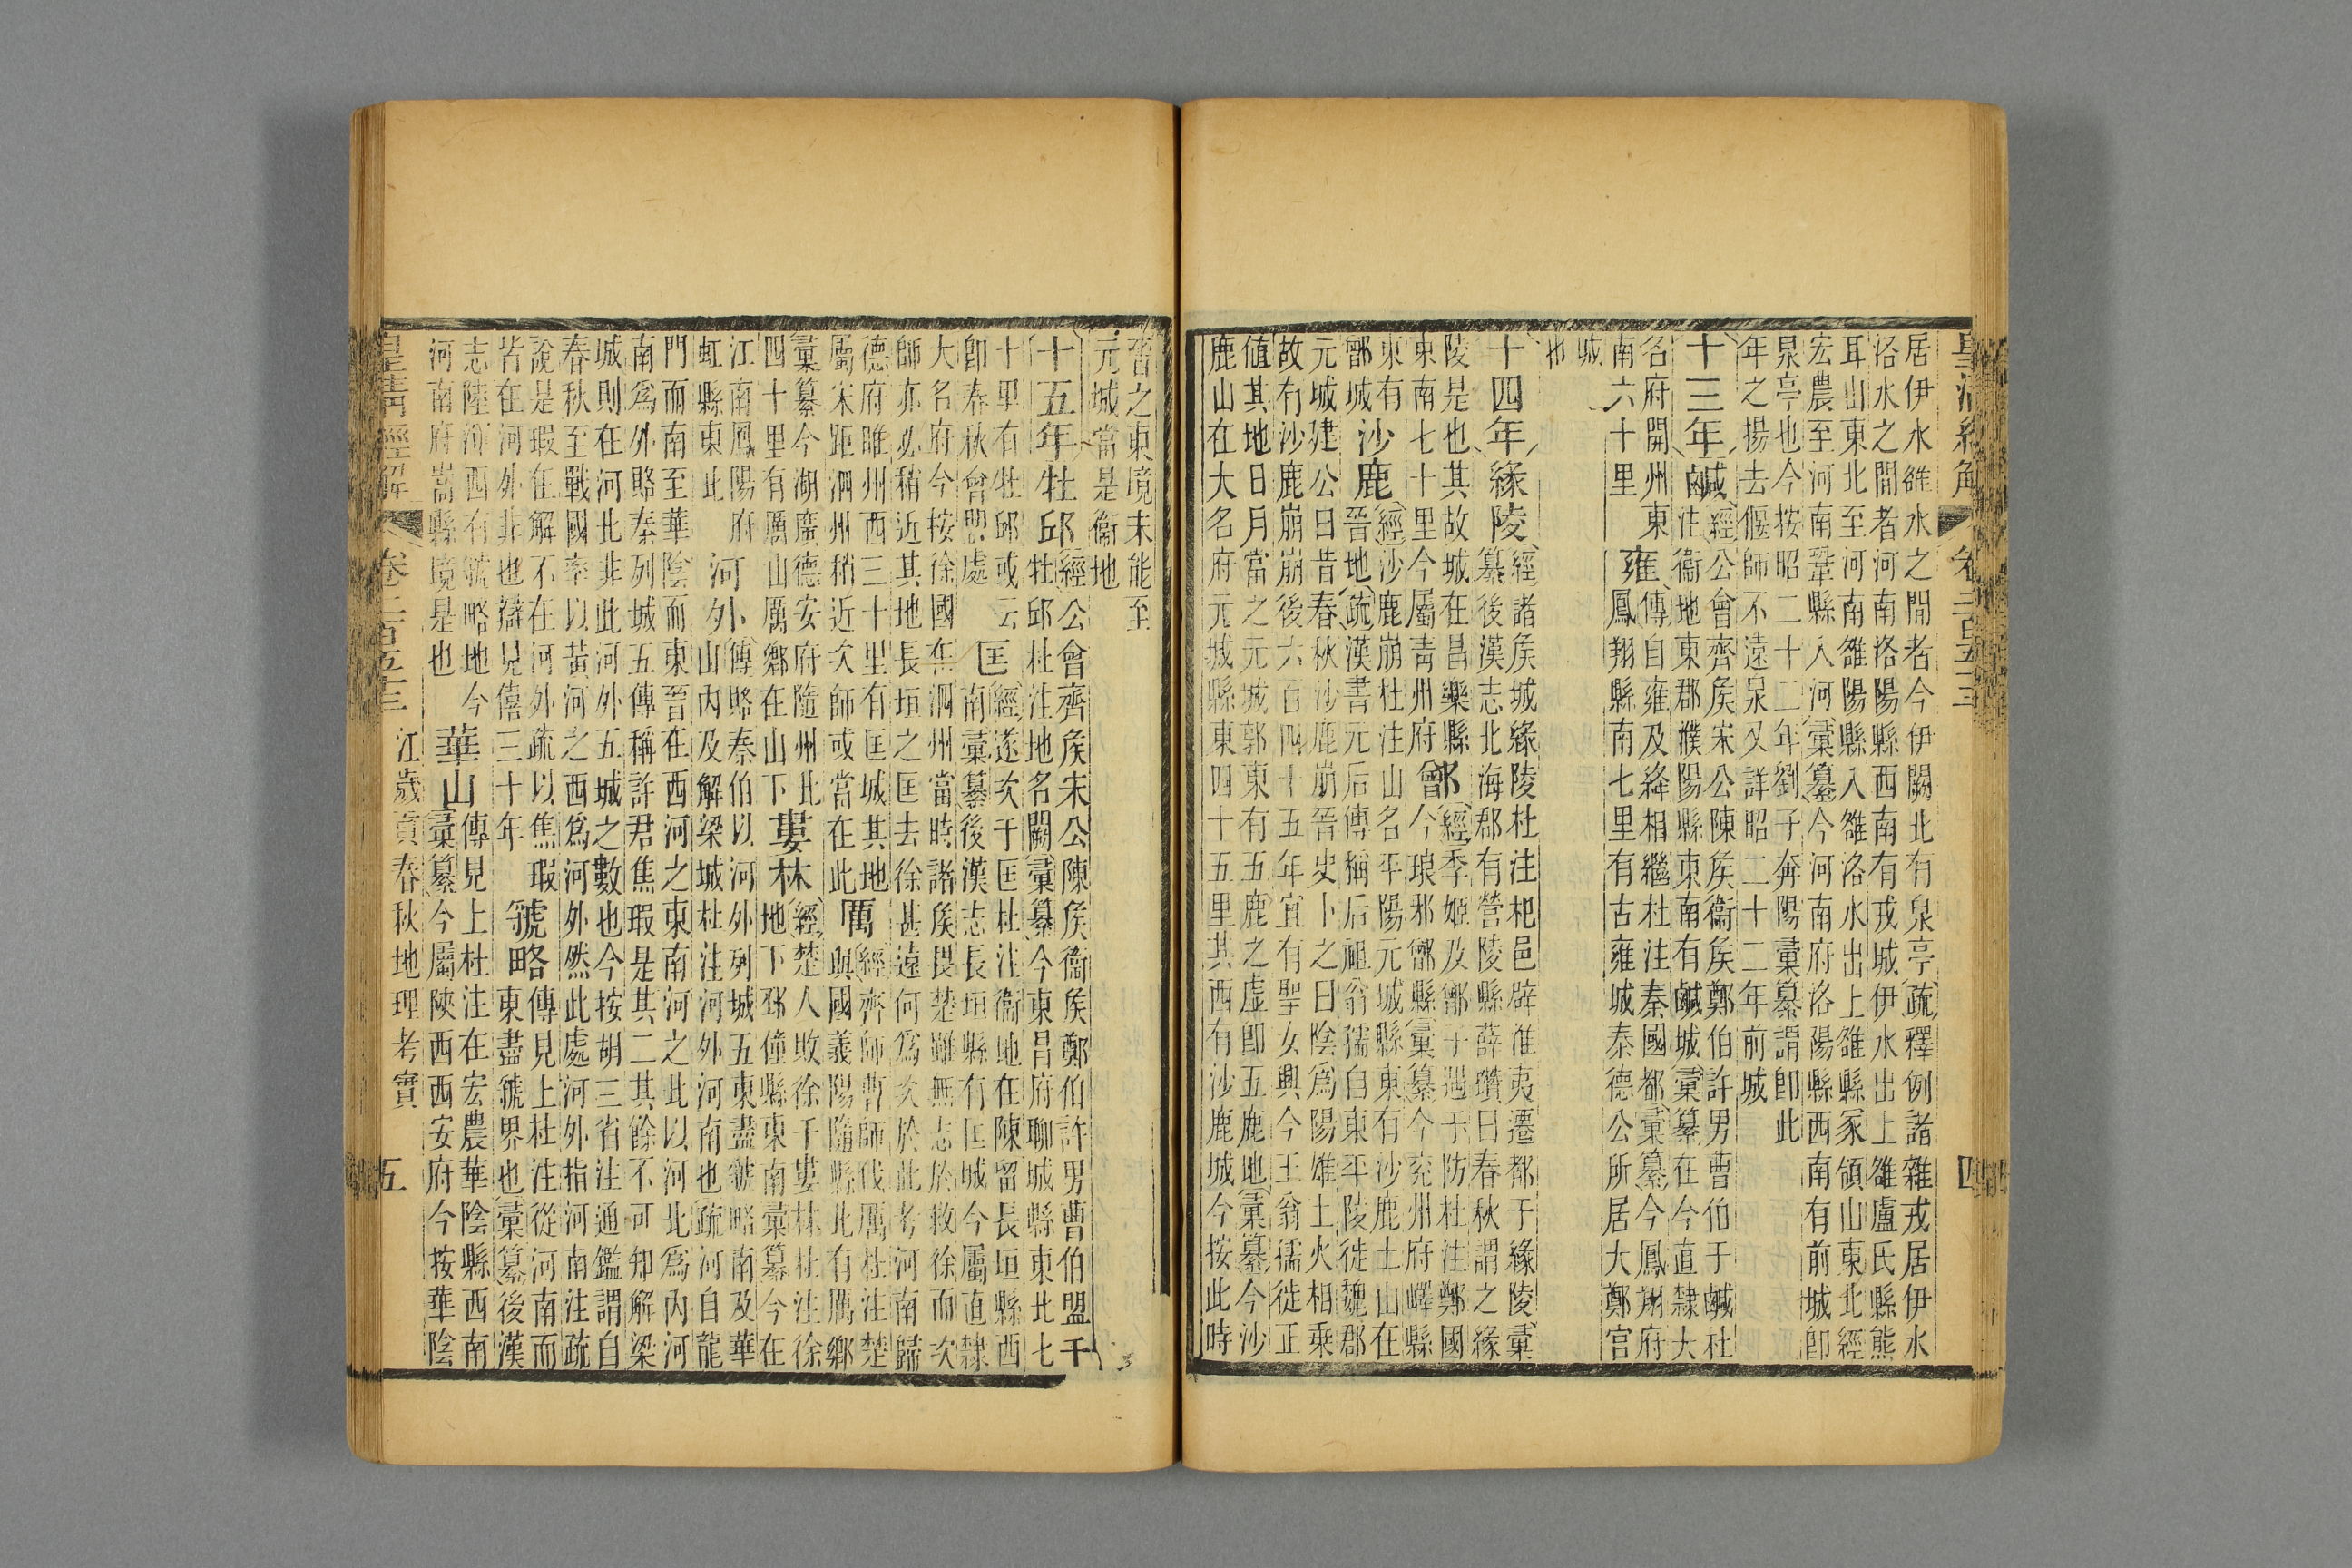 皇清經解 卷二百五十三 四
居伊水雒水之間者今伊闕北有泉亭疏釋例諸雜戎居伊水
洛水之間者河南洛陽縣西南有戎城伊水出上雒盧氏縣熊
耳山東北至河南雒陽縣入雒洛水出上雒縣冢領山東北經
宏農至河南鞏縣入河彙纂今河南府洛陽縣西南有前城卽
泉亭也今按昭二十二年劉子奔陽彙纂謂卽此
年之揚去偃師不遠泉又詳昭二十二年前城
十三年 鹹經公會齊侯宋公陳侯衞侯鄭伯許男曹伯于鹹杜
注衞地東郡濮陽縣東南有鹹城彙纂在今直隸大
名府開州東 雍傳自雍及絳相繼杜注秦國都彙纂今鳳翔府
南六十里 鳳翔縣南七里有古雍城秦德公所居大鄭宮
城
也
十四年 緣陵經諸侯城緣陵杜注杞邑辟淮夷遷都于緣陵彙
纂後漢志北海郡有營陵縣薛瓚曰春秋謂之緣
陵是也其故城在昌樂縣 鄫經季姬及鄫子遇于防杜注鄭國
東南七十里今屬青州府 今琅邪鄫縣彙纂今兖州府嶧縣
東有 沙鹿經沙鹿崩杜注山名平陽元城縣東有沙鹿土山在
鄫城 晉地疏漢書元后傳稱后祖翁孺自東平陵徙魏郡
元城建公曰昔春秋沙鹿崩晉史卜之曰陰爲陽雄土火相乗
故有沙鹿崩崩後六百四十五年宜有聖女興今王翁孺徙正
值其地日月當之元城郭東有五鹿之虛卽五鹿地彙纂今沙
鹿山在大名府元城縣東四十五里其西有沙鹿城今按此時
晉之東境未能至
元城當是衞地
十五年 牡邱經公會齊侯宋公陳侯衞侯鄭伯許男曹伯盟于
牡邱杜注地名闕彙纂今東昌府聊城縣東北七
十里有牡邱或云 匡經遂次于匡杜注衞地在陳留長垣縣西
卽春秋會盟處 南彙纂後漢志長垣縣有匡城今屬直隸
大名府今按徐國在泗州當時諸侯畏楚雖無志於救徐而次
師亦必稍近其地長垣之匡去徐甚遠何爲次於此考河南歸
德府睢州西三十里有匡城其地 厲經齊師曹師伐厲杜注楚
屬宋距泗州稍近次師或當在此 與國義陽隨縣北有厲鄉
彙纂今湖廣德安府隨州北 婁林經楚人敗徐于婁林杜注徐
四十里有厲山厲鄉在山下 地下邳僮縣東南彙纂今在
江南鳳陽府 河外傳賂秦伯以河外列城五東盡虢略南及華
虹縣東北 山內及解梁城杜注河外河南也疏河自龍
門而南至華陰而東晉在西河之東南河之北以河北爲內河
南爲外賂秦列城五傳稱許君焦瑕是其二其餘不可知解梁
城則在河北非此河外五城之數也今按胡三省注通鑑謂自
春秋至戰國率以黃河之西爲河外然此處河外指河南注疏
說是瑕在解不在河外疏以焦瑕 虢略傳見上杜注從河南而
皆在河外非也辯見僖三十年 東盡虢界也彙纂後漢
志陸渾西有虢略地今 華山傳見上杜注在宏農華陰縣西南
河南府嵩縣境是也 彙纂今屬陝西西安府今按華陰
皇清經解 卷二百五十三 江歲貢春秋地理考實 五